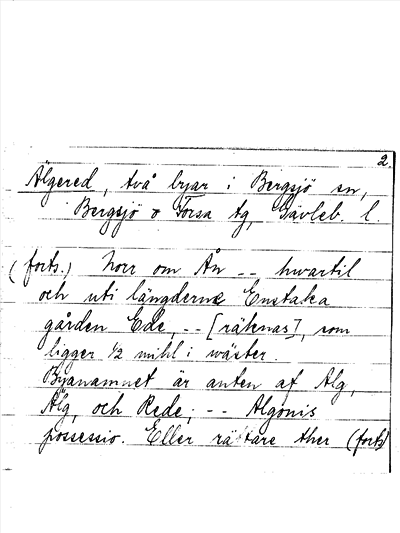 2.
Älgered, två byar i Bergsjö sn,
Bergsjö o Forsa tg, Gävleb. l.
(forts.) Norr om Ån -- hwartil
och uti längderne Enstaka
gården Ede, -- [räknas], som
ligger 1/2 mihl i wäster.
Byanamnet är anten af Alg,
Älg, och Rede, -- Algonis
possessio. Eller rättare ther (forts)